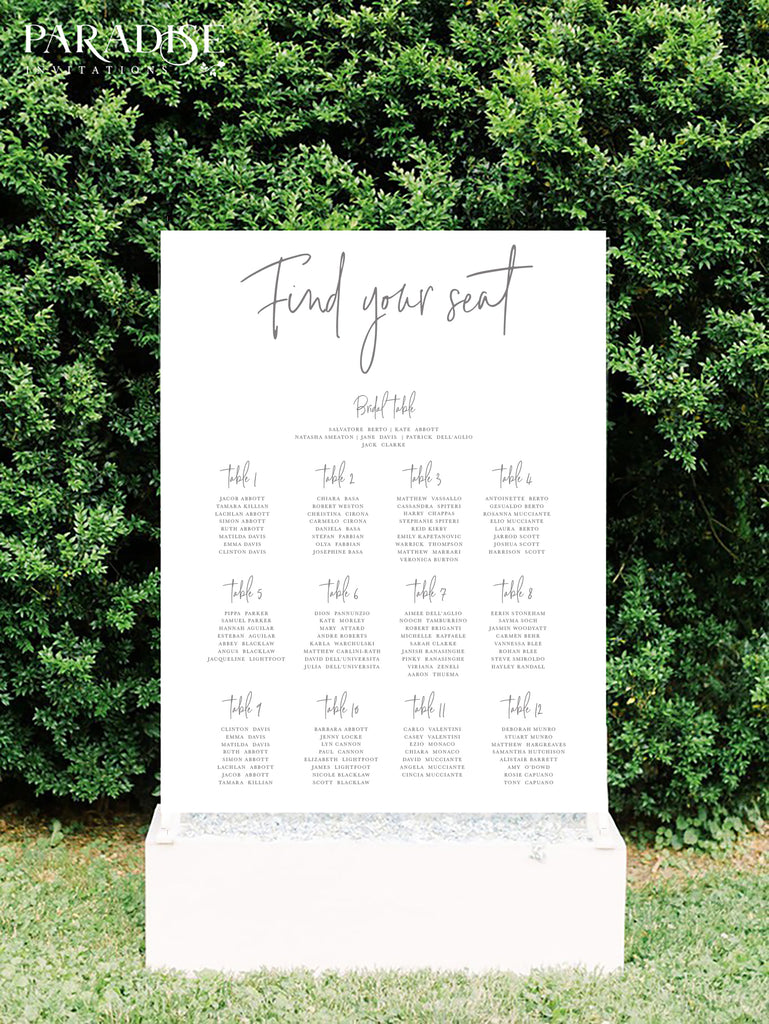 PARADISE
INVITATIONS
Find your seat
Bridal table
SALVATORE BERTO | KATE ABBOTT
NATASHA SMEATON | JANE DAVIS | PATRICK DELL'AGLIO
JACK CLARKE
table 1
JACOB ABBOTT
TAMARA KILLIAN
LACHLAN ABBOTT
SIMON ABBOTT
RUTH ABBOTT
MATILDA DAVIS
EMMA DAVIS
CLINTON DAVIS
table 2
CHIARA BASA
ROBERT WESTON
CHRISTINA CIRONA
CARMELO CIRONA
DANIELA BASA
STEFAN FABBIAN
OLYA FABBIAN
JOSEPHINE BASA
table 3
MATTHEW VASSALLO
CASSANDRA SPITERI
HARRY CHAPPAS
STEPHANIE SPITERI
REID KIRBY
EMILY KAPETANOVIC
WARRICK THOMPSON
MATTHEW MARRARI
VERONICA BURTON
table 4
ANTOINETTE BERTO
GESUALDO BERTO
ROSANNA MUCCIANTE
ELIO MUCCIANTE
LAURA BERTO
JARROD SCOTT
JOSHUA SCOTT
HARRISON SCOTT
table 5
PIPPA PARKER
SAMUEL PARKER
HANNAH AGUILAR
ESTEBAN AGUILAR
ABBEY BLACKLAW
ANGUS BLACKLAW
JACQUELINE LIGHTFOOT
table 6
DION PANNUNZIO
KATE MORLEY
MARY ATTARD
ANDRE ROBERTS
KARLA WARCHULSKI
MATTHEW CARLINI-RATH
DAVID DELL'UNIVERSITA
JULIA DELL'UNIVERSITA
table 7
AIMEE DELL'AGLIO
NOOCH TAMBURRINO
ROBERT BRIGANTI
MICHELLE RAFFAELE
SARAH CLARKE
JANISH RANASINGHE
PINKY RANASINGHE
VIRIANA ZENELI
AARON THUEMA
table 8
EERIN STONEHAM
SAYMA SOCH
JASMIN WOODYATT
CARMEN BEHR
VANNESSA BLEE
ROHAN BLEE
STEVE SMIROLDO
HAYLEY RANDALL
table 9
CLINTON DAVIS
EMMA DAVIS
MATILDA DAVIS
RUTH ABBOTT
SIMON ABBOTT
LACHLAN ABBOTT
JACOB ABBOTT
TAMARA KILLIAN
table 10
BARBARA ABBOTT
JENNY LOCKE
LYN CANNON
PAUL CANNON
ELIZABETH LIGHTFOOT
JAMES LIGHTFOOT
NICOLE BLACKLAW
SCOTT BLACKLAW
table 11
CARLO VALENTINI
CASEY VALENTINI
EZIO MONACO
CHIARA MONACO
DAVID MUCCIANTE
ANGELA MUCCIANTE
CINCIA MUCCIANTE
table 12
DEBORAH MUNRO
STUART MUNRO
MATTHEW HARGREAVES
SAMANTHA HUTCHISON
ALISTAIR BARRETT
AMY O'DOWD
ROSIE CAPUANO
TONY CAPUANO